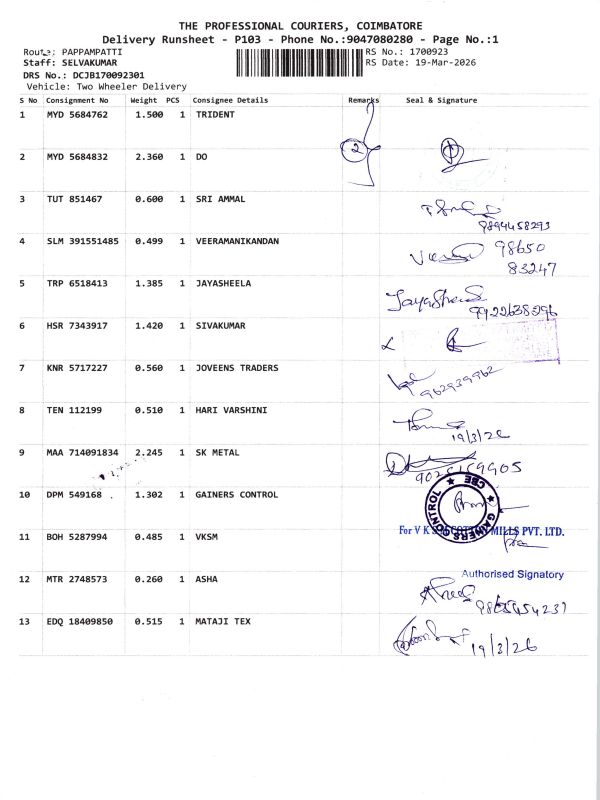 THE PROFESSIONAL COURIERS, COIMBATORE
Delivery Runsheet - P103 - Phone No.:9047080280 - Page No.:1
Route: PAPPAMPATTI
RS No.: 1700923
Staff: SELVAKUMAR
RS Date: 19-Mar-2026
DRS No.: DCJB170092301
Vehicle: Two Wheeler Delivery
S No Consignment No Weight PCS Consignee Details Remarks Seal & Signature
1 MYD 5684762 1.500 1 TRIDENT
2 MYD 5684832 2.360 1 DO 2
3 TUT 851467 0.600 1 SRI AMMAL
9894458293
4 SLM 391551485 0.499 1 VEERAMANIKANDAN 98650
83247
5 TRP 6518413 1.385 1 JAYASHEELA
9922638296
6 HSR 7343917 1.420 1 SIVAKUMAR
7 KNR 5717227 0.560 1 JOVEENS TRADERS
8 TEN 112199 0.510 1 HARI VARSHINI
19/3/26
9 MAA 714091834 2.245 1 SK METAL
10 DPM 549168 1.302 1 GAINERS CONTROL
GAINERS CONTROL CBE
11 BOH 5287994 0.485 1 VKSM
For V K S MILLS PVT. LTD.
Authorised Signatory
12 MTR 2748573 0.260 1 ASHA
13 EDQ 18409850 0.515 1 MATAJI TEX
19/3/26